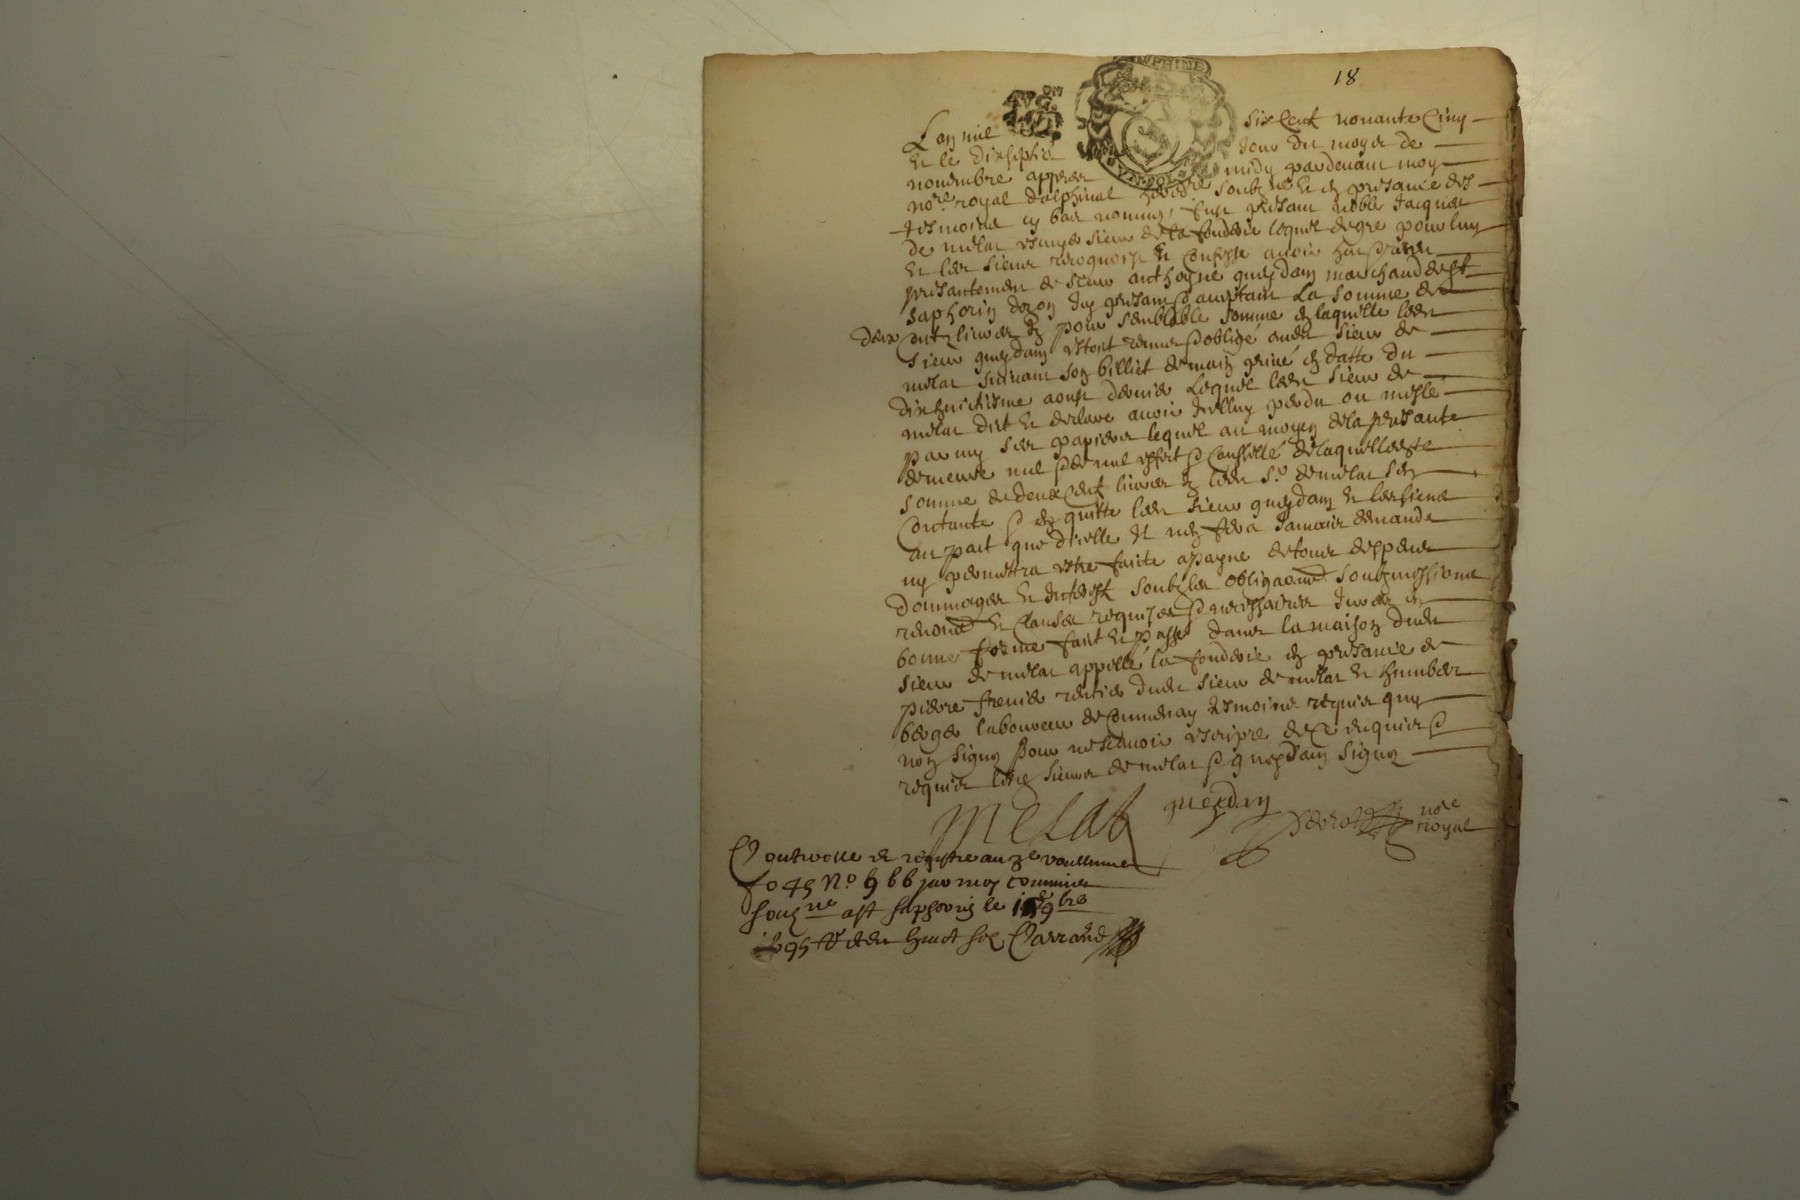 18
DAUPHINE
Lan mil six cent nonante cinq
et le dixseptie jour du moys de
novembre appres midy pardevant moy
nore royal dalphinal soubzne et en presance des
tesmoins cy bas nommes, fust presant noble Jacques
de melat sieur de la fonderie lequel de gre pour luy
et les siens recognoist et confesse avoir heu
presantement de sieur anthoyne queydan marchand de st
saphorin dozon icy presant acceptant la somme de
deux cent livres et pour semblable somme en laquelle ledt
sieur queydan estoit tenu oblige audt sieur de
melat suivant son billiet de main prive en datte du
dixhuictiesme aoust dernier lequel ledt sieur de
melat dict et declare avoir perdu ou mesle
parmy ses papiers lequel au moyen de la presante
demeure nul de nul effect cancelle de laquelle dte
somme de deux cent livres ledt sr de melat sen
contante en quitte ledt sieur queydan et les siens
au pact que dicelle il nen fera jamais demande
ny permettra estre faicte a payne de tous despens
dommages et interest soubz les obligaons soubzmissions
renons et clauses requises necessaires
bonne forme faict et passe dans la maison dudt
sieur de melat appelle la fonderie en presance de
pierre dudt sieur de melat et humber
berger laboureur de tesmoins requis qui
non signe pour ne scavoir escripre de ce enquis
requis lesdt sieurs de melat queydan signe
melat queydan nore
royal
Controlle et registre au 3e vollume
fo 45 no 966 par moy commis
souzne a st saphorin le 9bre
1695 huict sol Carrand